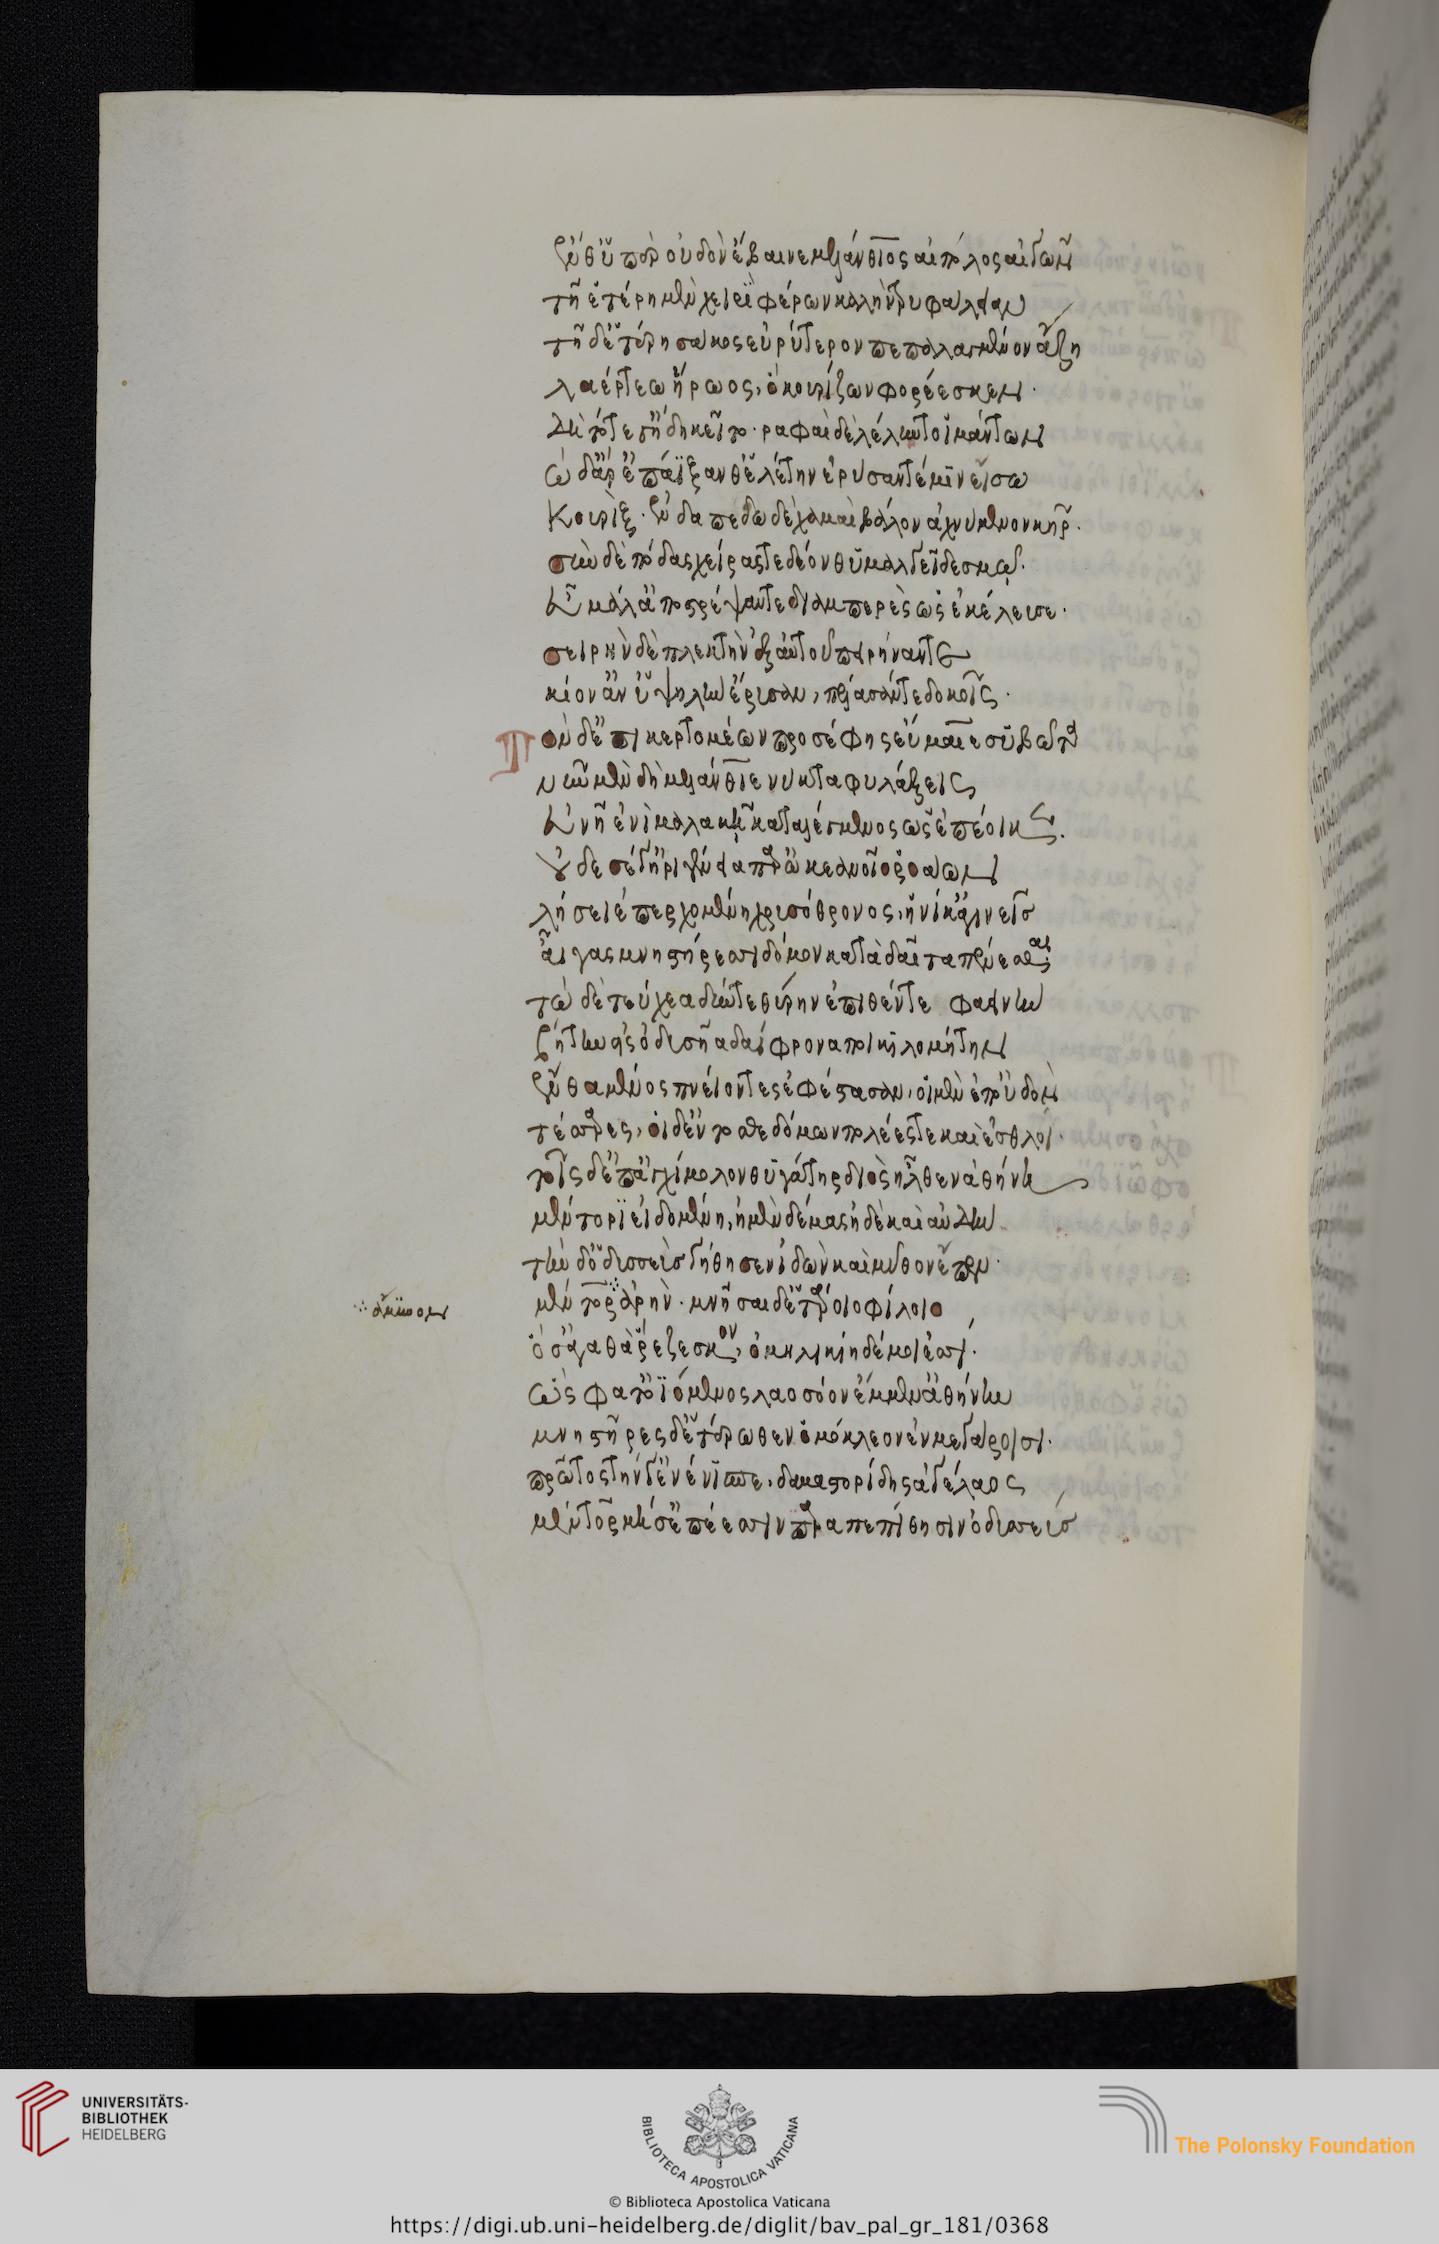 εὖθ' ὑπὲρ οὐδὸν ἔβαινε μελάνθιος αἰπόλος αἰγῶν
τῆ ἑτέρη μὲν χειρὶ φέρων καλὴν τρυφάλειαν
τῆ δ' ἑτέρη σάκος εὐρὺ γέρον πεπαλαγμένον ἄζη
λαέρτεω ἥρωος, ὃ κουρίζων φορέεσκεν·
δὴ τότε γ' ἤδη κεῖτο· ραφαὶ δὲ λέλυντο ἱμάντων
τὼ δ' ἄρ' ἐπαΐξανθ' ἑλέτην ἔρυσάν τέ μιν εἴσω
κουρίξ· ἐν δαπέδω δὲ χαμαὶ βάλον ἀχνύμενον κῆρ·
σὺν δὲ πόδας χεῖράς τε δέον θυμαλγέϊ δεσμῶ·
εὖ μάλ' ἀποστρέψαντε διαμπερὲς ὡς ἐκέλευσε·
σειρὴν δὲ πλεκτὴν ἐξ αὐτοῦ πειρήναντε
κίον' ἀν' ὑψηλὴν ἔρυσαν, πέλασάν τε δοκοῖς·
τὸν δ' ἐπικερτομέων προσέφης εὔμαιε συβῶτα
νῦν μὲν δὴ μελάνθιε νύκτα φυλάξεις
εὐνῆ ἔνι μαλακῆ καταλέγμενος ὥς σ' ἐπέοικεν·
οὐδέ σέ γ' ἠριγένεια παρ' ὠκεανοῖο ροάων
λήσει ἐπερχομένη χρυσόθρονος, ἡνίκ' ἀγινεῖς
αἶγας μνηστήρεσσι δόμον κατὰ δαῖτα πένεσθαι·
τὼ δὲ τεύχεα δύντε θύρην ἐπιθέντε φαεινὴν
βήτην εἰς ὀδυσῆα δαΐφρονα ποικιλομήτην
ἔνθα μένος πνείοντες ἐφέστασαν, οἱ μὲν ἐπ' οὐδὸν
τέσσαρες, οἱ δ' ἔντοσθε δόμων πολέες τε καὶ ἐσθλοί·
τοῖς δ' ἐπ' ἀγχίμολον θυγάτηρ διὸς ἦλθεν ἀθήνη
μέντορι εἰδομένη, ἠμὲν δέμας ἠδὲ καὶ αὐδὴν
τὴν δ' ὀδυσσεὺς γήθησεν ἰδὼν καὶ μῦθον ἔειπεν·
μέντορ ἀρὴν· μνῆσαι δ' ἑτάροιο φίλοιο
∴ ἄμυνον
ὅς σ' ἀγαθὰ ρέζεσκον, ὁμηλικίη δέ μοι ἐσσί·
ὣς φάτ' ὀϊόμενος λαοσόον ἔμμεν ἀθήνην
μνηστῆρες δ' ἑτέρωθεν ὁμόκλεον ἐν μεγάροισι·
πρῶτος τήν γ' ἐνένιπε, δαμαστορίδης ἀγέλαος
μέντορ μή σ' ἐπέεσσι παραιπεπίθησιν ὀδυσσεύς
UNIVERSITÄTS-
BIBLIOTHEK
HEIDELBERG
BIBLIOTECA APOSTOLICA VATICANA
The Polonsky Foundation
© Biblioteca Apostolica Vaticana
https://digi.ub.uni-heidelberg.de/diglit/bav_pal_gr_181/0368